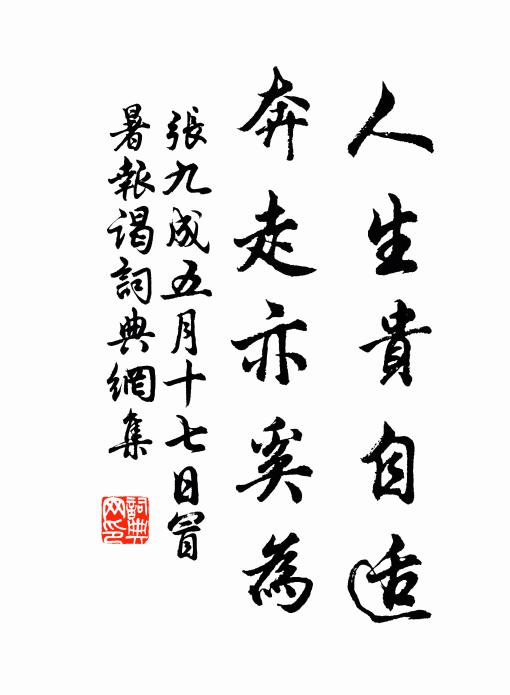 人生貴自适
奔走亦奚為
張九成五月十七日冒
暑報谒詞典網集
詞典
网印